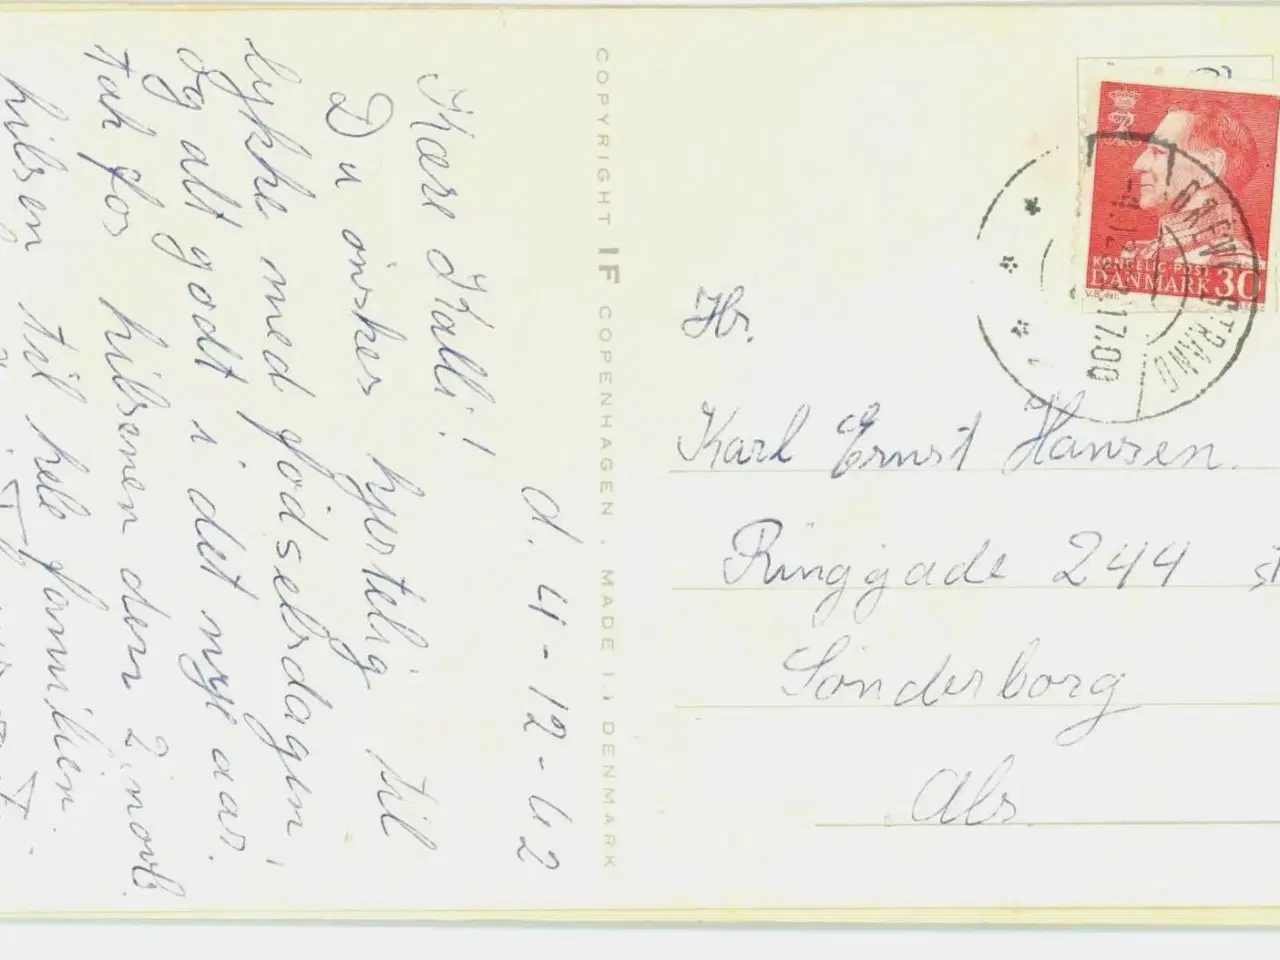 d. 4-12-62
Kære Kalli!
Du önskes hjertelig til
lykke med födselsdagen,
og alt godt i det nye aar.
tak for hilsenen den 2 novb.
hilsen til hele familien.
COPYRIGHT IF COPENHAGEN. MADE IN DENMARK
KONGELIG POST
DANMARK 30
V.B. del.
GREVE STRAND
17.00
Hr.
Karl Ernst Hansen.
Ringgade 244 st
Sönderborg
Als